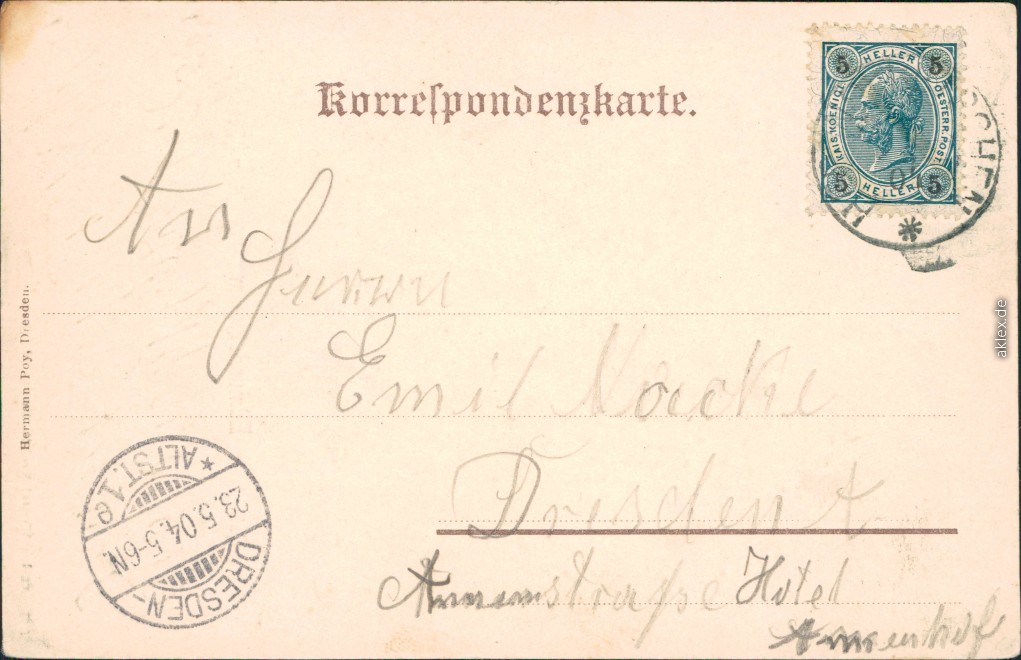 Korrespondenzkarte.
5 HELLER 5
KAIS. KOENIGL. OESTERR. POST.
5 HELLER 5
An
Herrn
Emil
Dresden A
Annenstraße Hotel
Annenhof
DRESDEN-
23.5.04. 5-6N.
* ALTST. 1 e
Hermann Poy, Dresden.
aklex.de